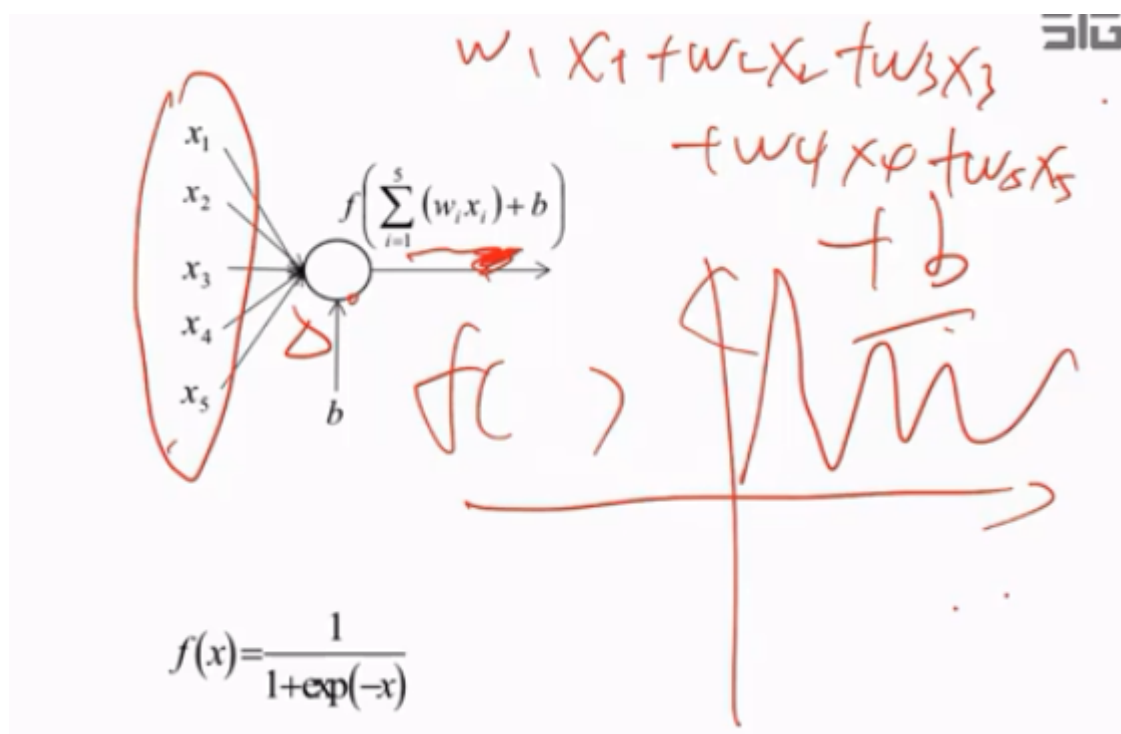 SIG
w1 x1 + w2 x2 + w3 x3
+ w4 x4 + w5 x5
+ b
x₁
x₂
x₃
x₄
x₅
f(∑ᵢ₌₁⁵ (wᵢxᵢ) + b)
b
f( )
f(x)=1/(1+exp(−x))